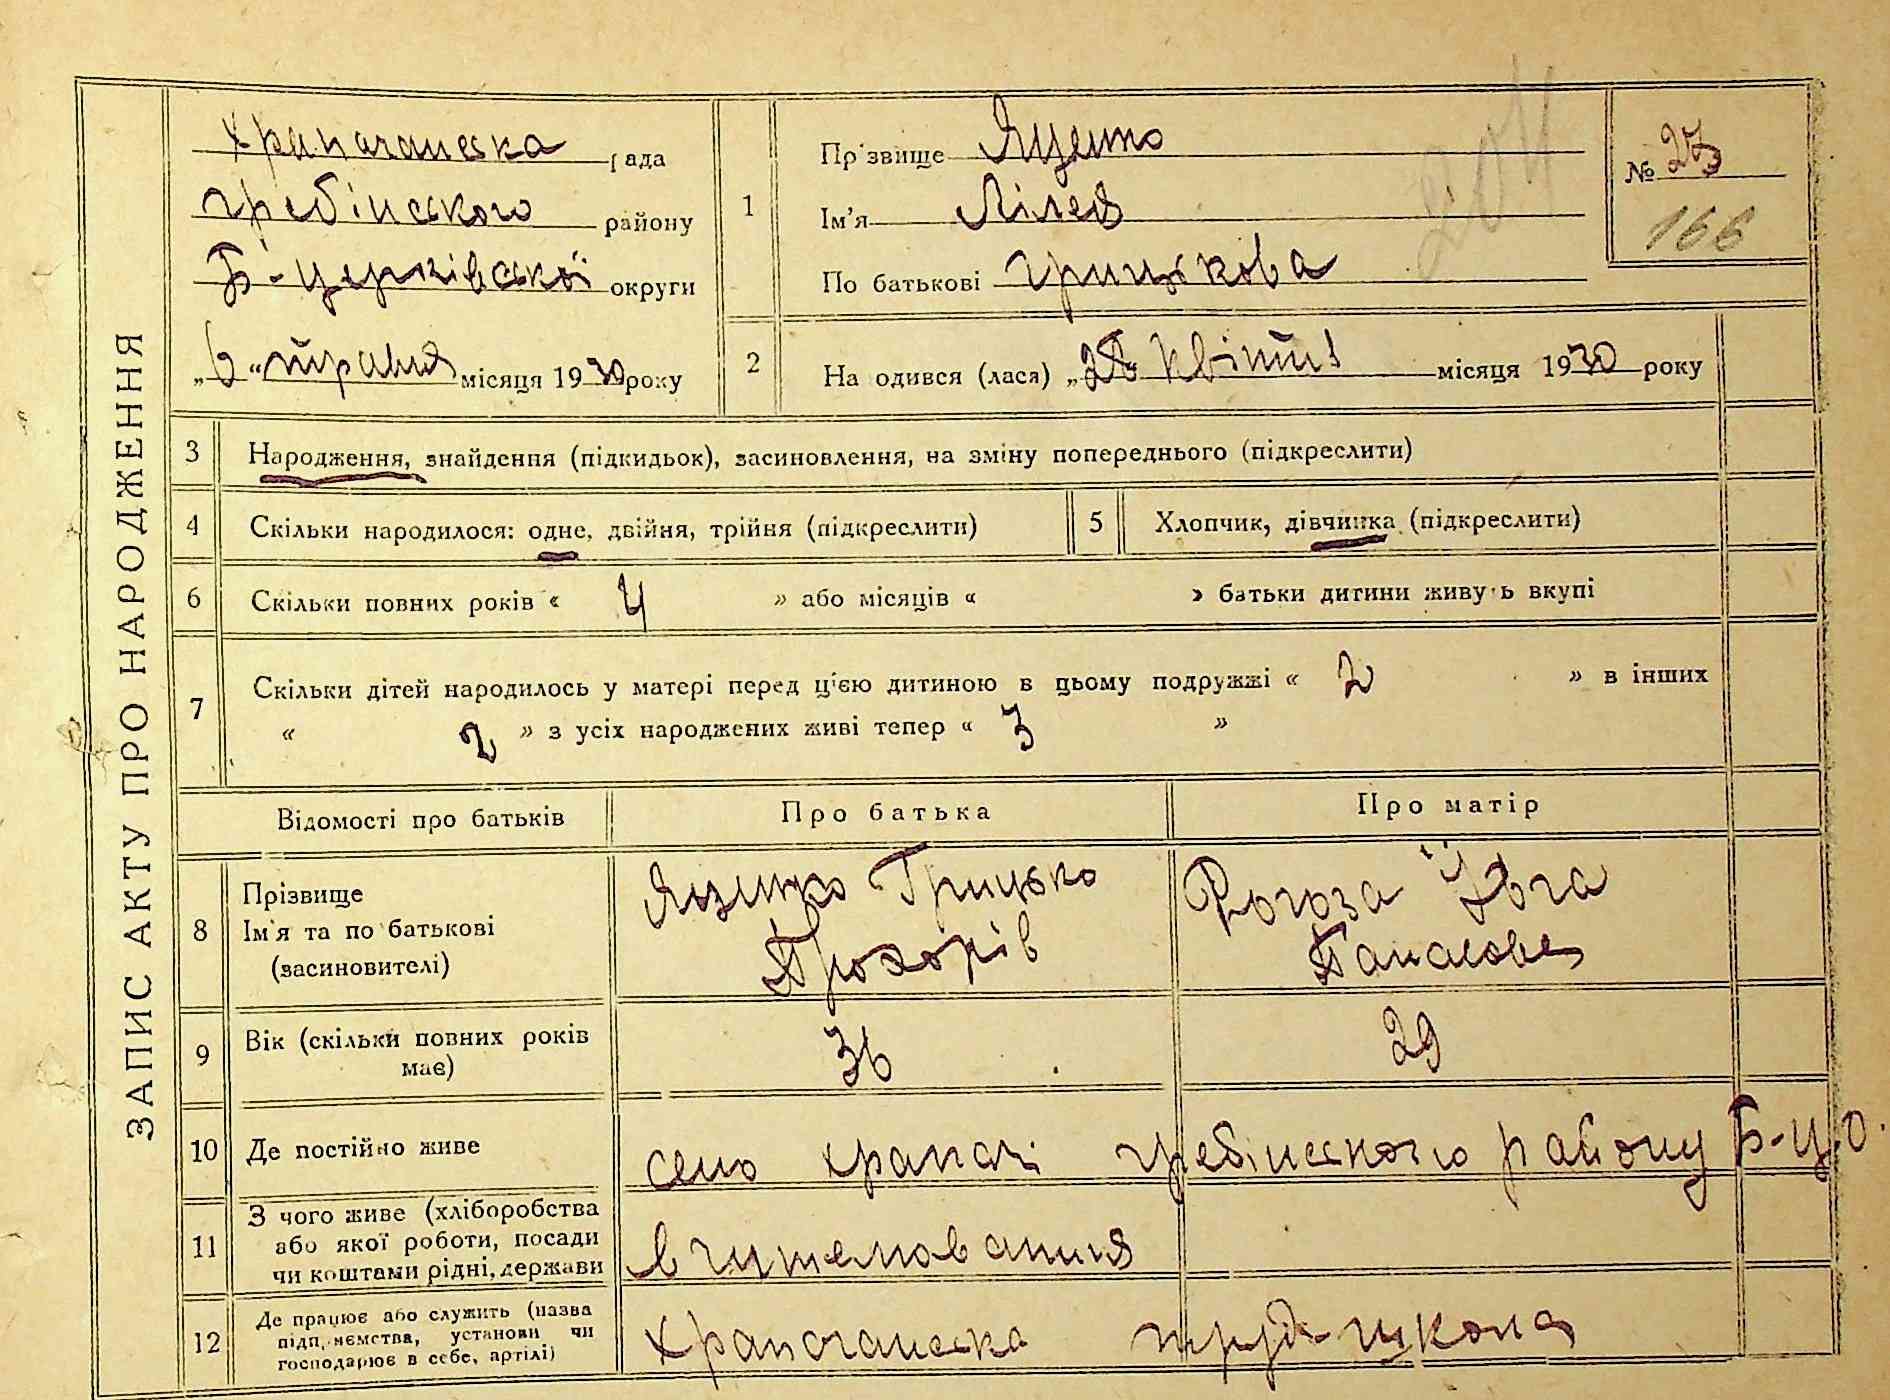 ЗАПИС АКТУ ПРО НАРОДЖЕННЯ
Храпачанська рада
Гребінського району
Б-Церківської округи
„6“ травня місяця 1930 року
1
Прізвище Яценко
Ім'я Лілея
По батькові Грицькова
№ 23
166
204
2
На одився (лася) „ квітня місяця 1930 року
3 Народження, знайдення (підкидьок), засиновлення, на зміну попереднього (підкреслити)
4 Скільки народилося: одне, двійня, трійня (підкреслити)
5 Хлопчик, дівчинка (підкреслити)
6 Скільки повних років « 4 » або місяців « » батьки дитини живуть вкупі
7 Скільки дітей народилось у матері перед цією дитиною в цьому подружжі « 2 » в інших
« 2 » з усіх народжених живі тепер « 3 »
Відомості про батьків Про батька Про матір
8 Прізвище
Ім'я та по батькові
(засиновителі)
Яценко Грицько
Прохорів
Рогоза Ївга
Панасова
9 Вік (скільки повних років
має)
36 29
10 Де постійно живе село Храпачі Гребінського району Б-Ц.О.
11 З чого живе (хліборобства
або якої роботи, посади
чи коштами рідні, держави
вчителювання
12 Де працює або служить (назва
підприємства, установи чи
господарює в себе, артілі)
Храпачанська труд-школа